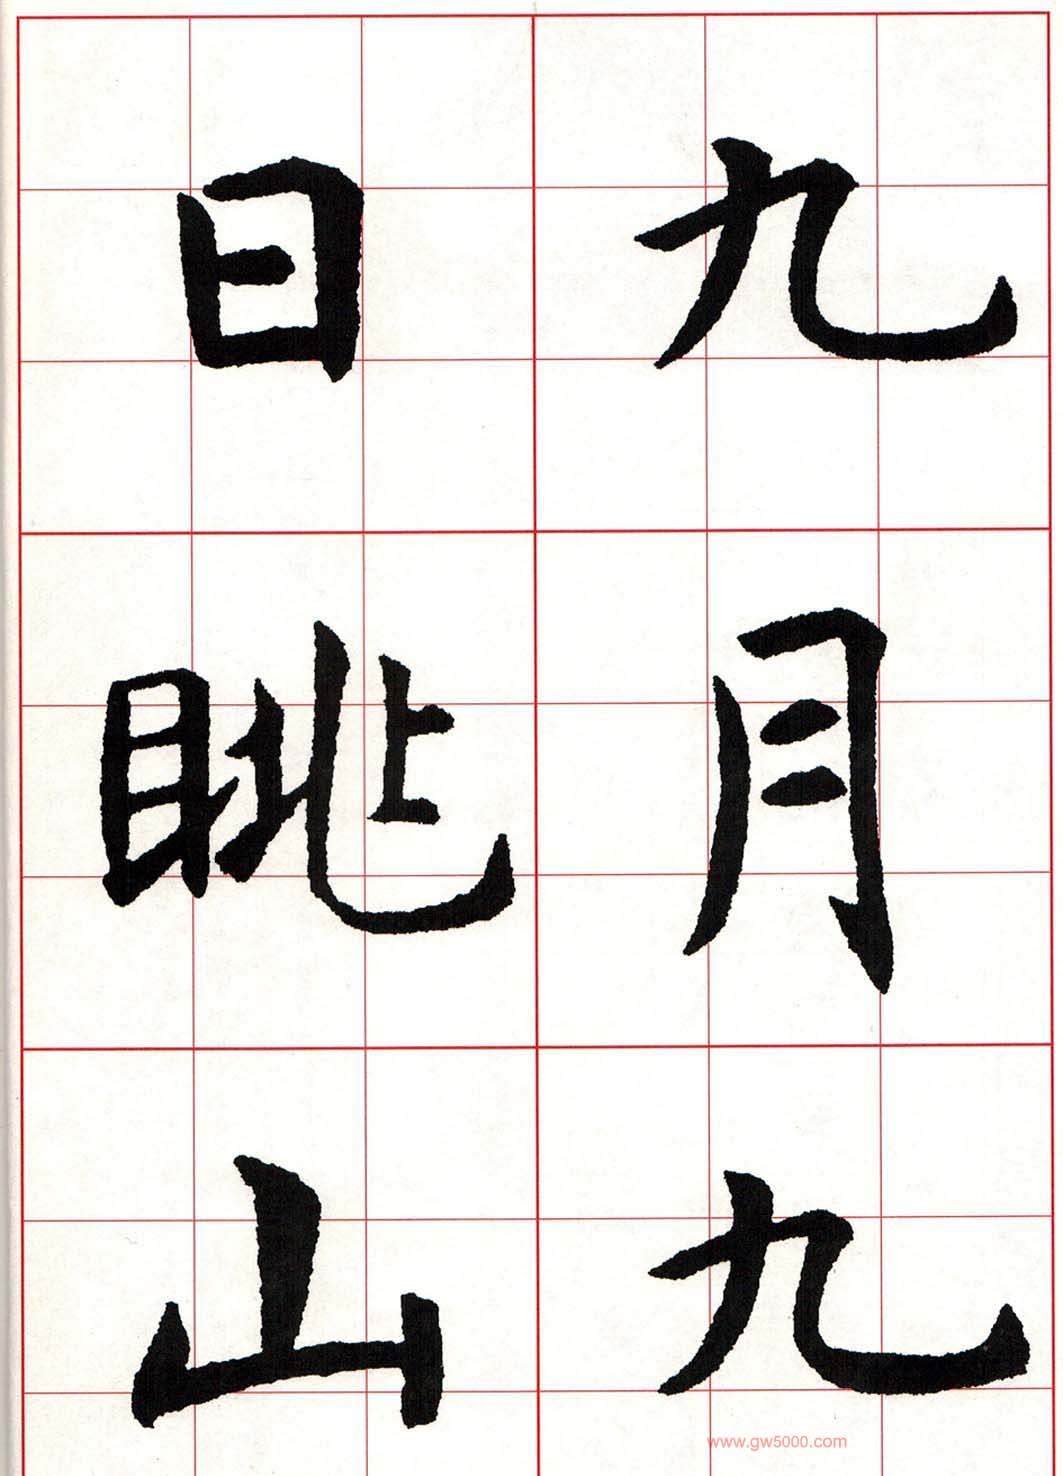 九月九
日眺山
www.gw5000.com